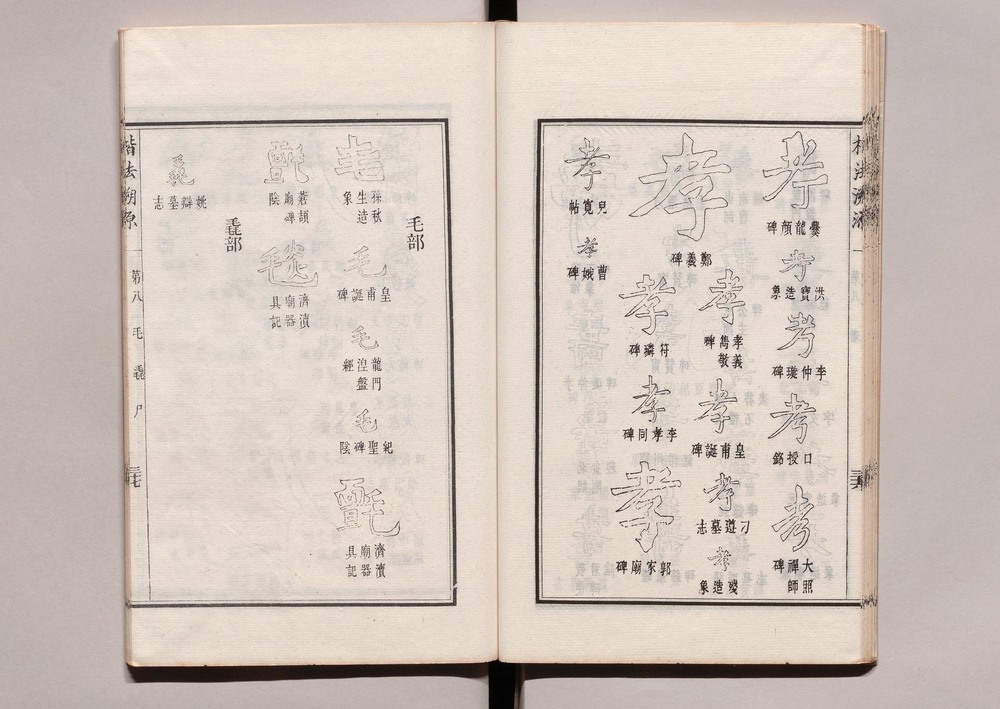 考
爨龍顏碑
考
洪寶造象
考
李仲璇碑
考
口授銘
孝
大照禪師碑
孝
鄭義碑
孝
孝義雋敬碑
孝
皇甫誕碑
孝
刁遵墓志
孝
殘造象
孝
符璘碑
孝
李孝同碑
孝
郭家廟碑
孝
兒寬帖
孝
曹娥碑
毛部
毛
孫秋生造象
毛
皇甫誕碑
毛
龍門涅盤經
毛
紀聖碑陰
氈
濟瀆廟器具記
氈
蒼頡廟碑陰
毯
濟瀆廟器具記
毳部
毳
姚辯墓志
楷法溯源
第八
毛
毳
尸